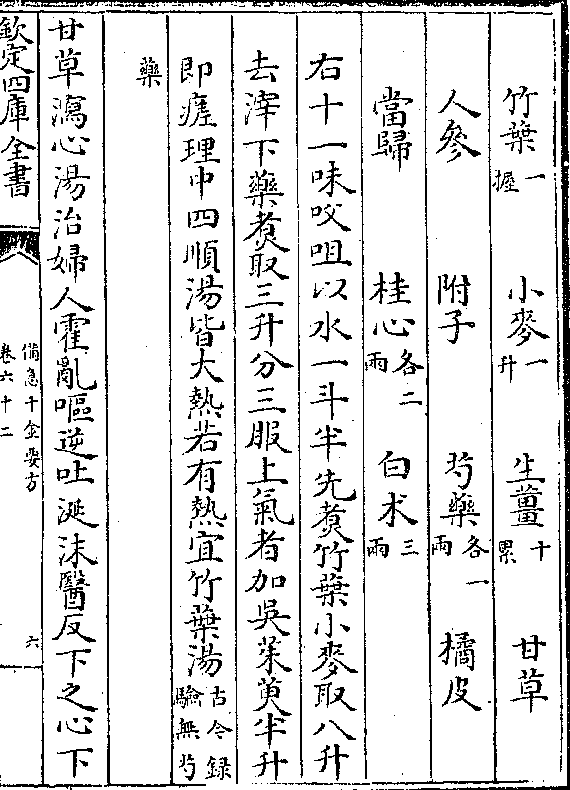 竹葉一握　小麥一升　生薑十累　甘草
人參　附子　芍藥各一兩　橘皮
當歸　桂心各二兩　白术三兩
右十一味㕮咀以水一斗半先煮竹葉小麥取八升
去滓下藥煮取三升分三服上氣者加吳茱萸半升
即瘥理中四順湯皆大熱若有熱宜竹葉湯古今録驗無芍
藥
甘草瀉心湯治婦人霍亂嘔逆吐涎沫醫反下之心下
欽定四庫全書
備急千金要方
卷六十二
六